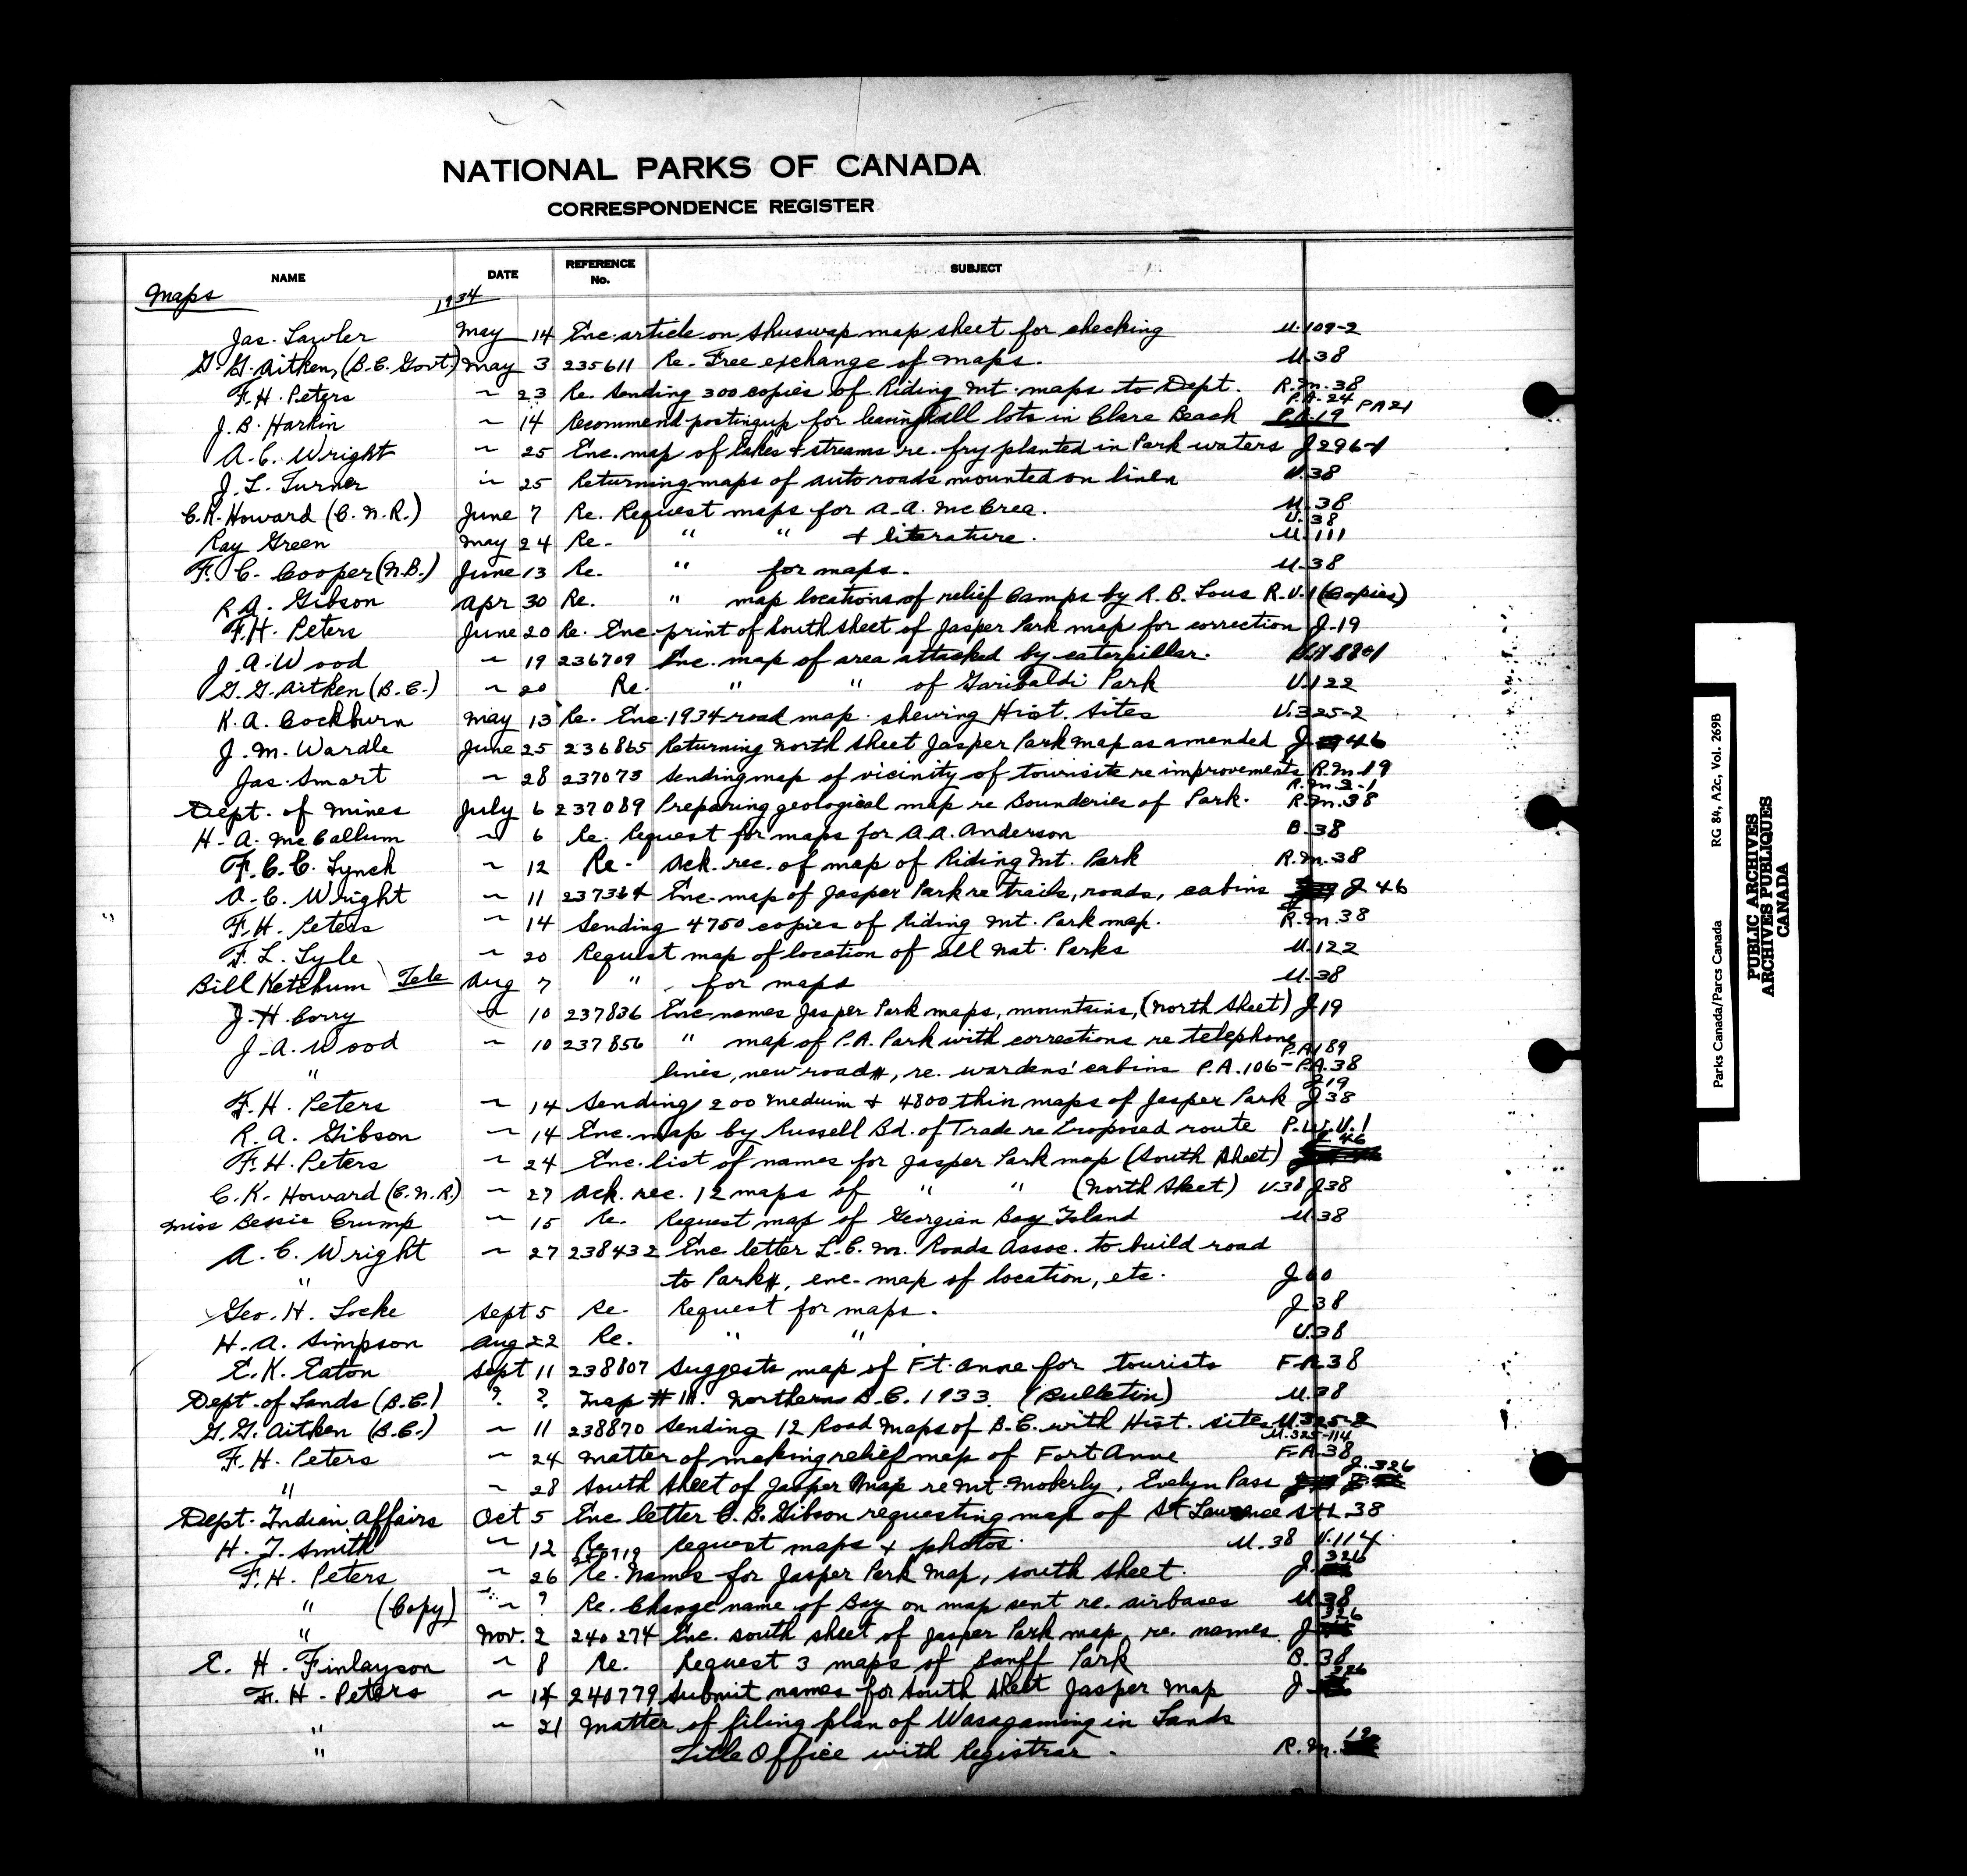 NATIONAL PARKS OF CANADA
CORRESPONDENCE REGISTER
NAME DATE REFERENCE No. SUBJECT
Maps 1934
Jas. Lawler May 14 Enc. article on Shuswap map sheet for checking U.109-2
G.G. Aitken, (B.C. Govt.) May 3 235611 Re. Free exchange of maps. U.38
F.H. Peters ~ 23 Re. Sending 300 copies of Riding Mt. maps to Dept. R.M.38
P.A.24
J.B. Harkin ~ 14 Recommend posting up for leasing all lots in Clare Beach P.A.19 PA21
A.C. Wright ~ 25 Enc. map of lakes & streams re. fry planted in Park waters J.296-1
J.L. Turner ~ 25 Returning maps of auto roads mounted on linen U.38
C.K. Howard (C.N.R.) June 7 Re. Request maps for A.A. McCrea. U.38
U.38
Ray Green May 24 Re. " " & literature. U.111
F.C. Cooper (N.B.) June 13 Re. " for maps. U.38
R.A. Gibson Apr 30 Re. " map locations of relief Camps by R.B. R.U.1 (Copies)
F.H. Peters June 20 Re. Enc. print of South Sheet of Jasper Park map for correction J-19
J.A. Wood ~ 19 236709 Enc. map of area attacked by caterpillar.
G.G. Aitken (B.C.) ~ 20 Re. " " of Garibaldi Park U.122
K.A. Cockburn May 13 Re. Enc. 1934 road map shewing Hist. Sites U.325-2
J.M. Wardle June 25 236865 Returning North Sheet Jasper Park Map as amended J 46
Jas. Smart ~ 28 237073 Sending map of vicinity of tourisite re improvements R.M.19
R.M.2-1
Dept. of Mines July 6 237089 Preparing geological map re Bounderies of Park. R.M.38
H.A. McCallum ~ 6 Re. Request for maps for A.A. Anderson B.38
F.C.C. Lynch ~ 12 Re. Ack. rec. of map of Riding Mt. Park R.M.38
A.C. Wright ~ 11 237364 Enc. map of Jasper Park re trails, roads, cabins J 46
F.H. Peters ~ 14 Sending 4750 copies of Riding Mt. Park map. R.M.38
F.L. Lyle ~ 20 Request map of location of all Nat. Parks U.122
Bill Ketchum Tele Aug 7 " for maps U.38
J.H. Corry ~ 10 237836 Enc names Jasper Park maps, mountains, (North Sheet) J.19
J.A. Wood ~ 10 237856 " map of P.A. Park with corrections re telephone P.A.189
" lines, new road, re. wardens' cabins P.A.106- P.A.38
J.19
F.H. Peters ~ 14 Sending 200 medium & 4800 thin maps of Jasper Park J 38
R.A. Gibson ~ 14 Enc. map by Russell Bd. of Trade re Proposed route P.W.U.1
J. 46
F.H. Peters ~ 24 Enc. list of names for Jasper Park map (South Sheet)
C.K. Howard (C.N.R.) ~ 27 Ack. rec. 12 maps of " " (North Sheet) U.38 J.38
Miss Bessie Crump ~ 15 Re. Request map of Georgian Bay Island U.38
A.C. Wright ~ 27 238432 Enc letter L.C.M. Roads Assoc. to build road
" to Park, enc. map of location, etc. J.60
Geo. H. Locke Sept 5 Re. Request for maps. J 38
H.A. Simpson Aug 22 Re. " " U.38
E.K. Eaton Sept 11 238807 Suggests map of Ft. Anne for tourists F.A.38
Dept. of Lands (B.C.) ? ? Map # 1H. Northern B.C. 1933. (Bulletin) U.38
G.G. Aitken (B.C.) ~ 11 238870 Sending 12 Road Maps of B.C. with Hist. sites U.325-2
U.325-114
F.H. Peters ~ 24 Matter of making relief map of Fort Anne F.A.38
J.326
" ~ 28 South Sheet of Jasper Map re Mt. Moberly, Evelyn Pass
Dept. Indian Affairs Oct 5 Enc letter C.B. Gibson requesting map of St Lawrence St.L.38
H.T. Smith ~ 12 Re. Request maps & photos. U.38 U.114
F.H. Peters ~ 26 Re. Names for Jasper Park Map, south sheet. J. 326
" (Copy) ~ ? Re. Change name of Bay on map sent re. airbases U.38
" Nov. 2 240274 Enc. south sheet of Jasper Park map, re. names. J 326
E.H. Finlayson ~ 8 Re. Request 3 maps of Banff Park B.38
F.H. Peters ~ 14 240779 Submit names for South Sheet Jasper Map J 326
" ~ 21 Matter of filing plan of Wasagaming in Lands
" Title Office with Registrar. R.M. 19
Parks Canada/Parcs Canada RG 84, A2c, Vol. 269B
PUBLIC ARCHIVES
ARCHIVES PUBLIQUES
CANADA